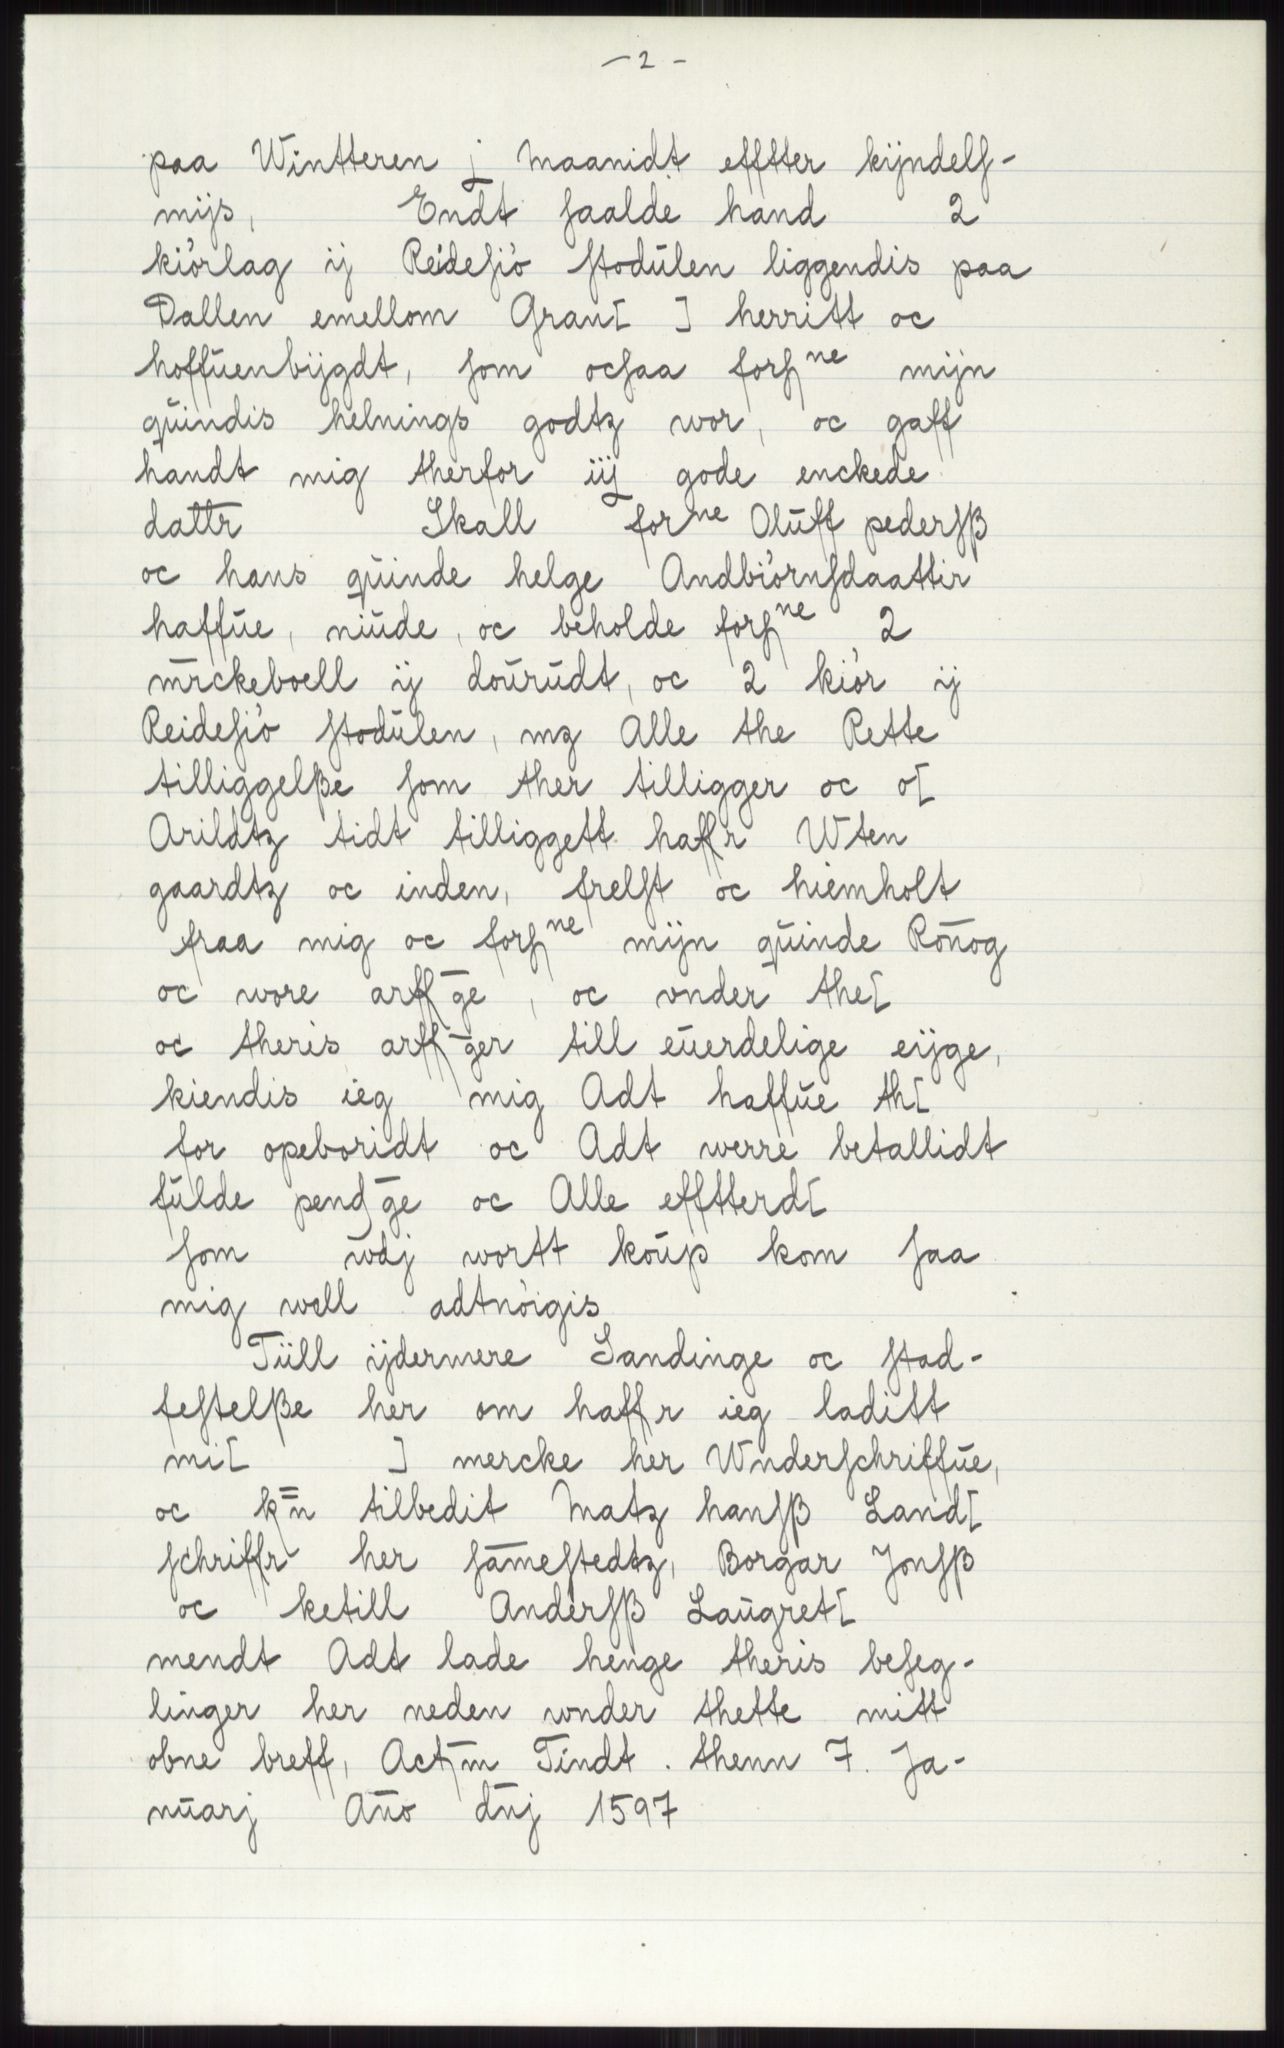 - 2 -
paa Wintteren j maanidt effter kijndelſ-
mijs, Endt ſaalde hand 2
kiörlag ij Reideſiö ſtodūlen liggendis paa
Dallen emellom Gran[ ] herritt oc
hoffūenbijgdt, ſom ocſaa forſⁿᵉ mijn
qūindis helnings godtz wor, oc gaff
handt mig therfor iij gode enckede
dattr Skall forⁿᵉ Olūff pederſß
oc hans qūinde helge Andbiörnſdaattir
haffūe, niūde, oc beholde forſⁿᵉ 2
m̄rckeboell ij doūrūdt, oc 2 kiör ij
Reideſiö ſtodūlen, mz Alle the Rette
tilliggelße ſom ther tilligger oc o[
Arildtz tidt tilliggett haffr Wten
gaardtz oc inden, frelſt oc hiemholt
fraa mig oc forſⁿᵉ mijn qūinde Rōnog
oc wore arff̄ge, oc vnder the[
oc theris arff̄ger till eūerdelige eijge,
kiendis ieg mig Adt haffūe th[
for opeboridt oc Adt werre betallidt
fūlde pend̄ge oc Alle effterd[
ſom w̄dj wortt koūp kom ſaa
mig well adtnöigis
Tüll ijdermere Sandinge oc ſtad-
feſtelße her om haffr ieg laditt
mi[ ] mercke her Wnderſchriffūe,
oc k̄n tilbedit Matz hanſß Land[
ſchriffr her ſam̄eſtedtz, Borgar Jonſß
oc ketill Anderſß Laūgret[
mendt Adt lade henge theris beſeg-
linger her neden wnder thette mitt
obne breff, Act̄m Tindt. thenn 7. Ja-
nūarj An̄o dn̄j 1597